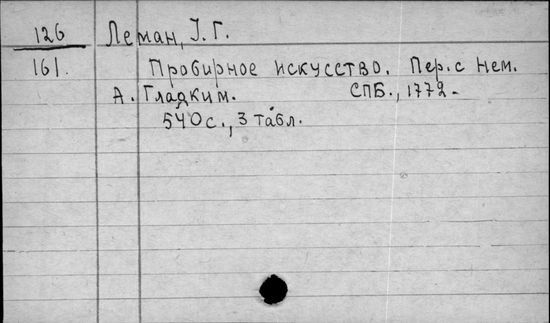 126 Леман, І. Г.
161. Пробирное искусство. Пер. с нем.
А. Гладким. СПБ., 1772.
540 с., 3 табл.